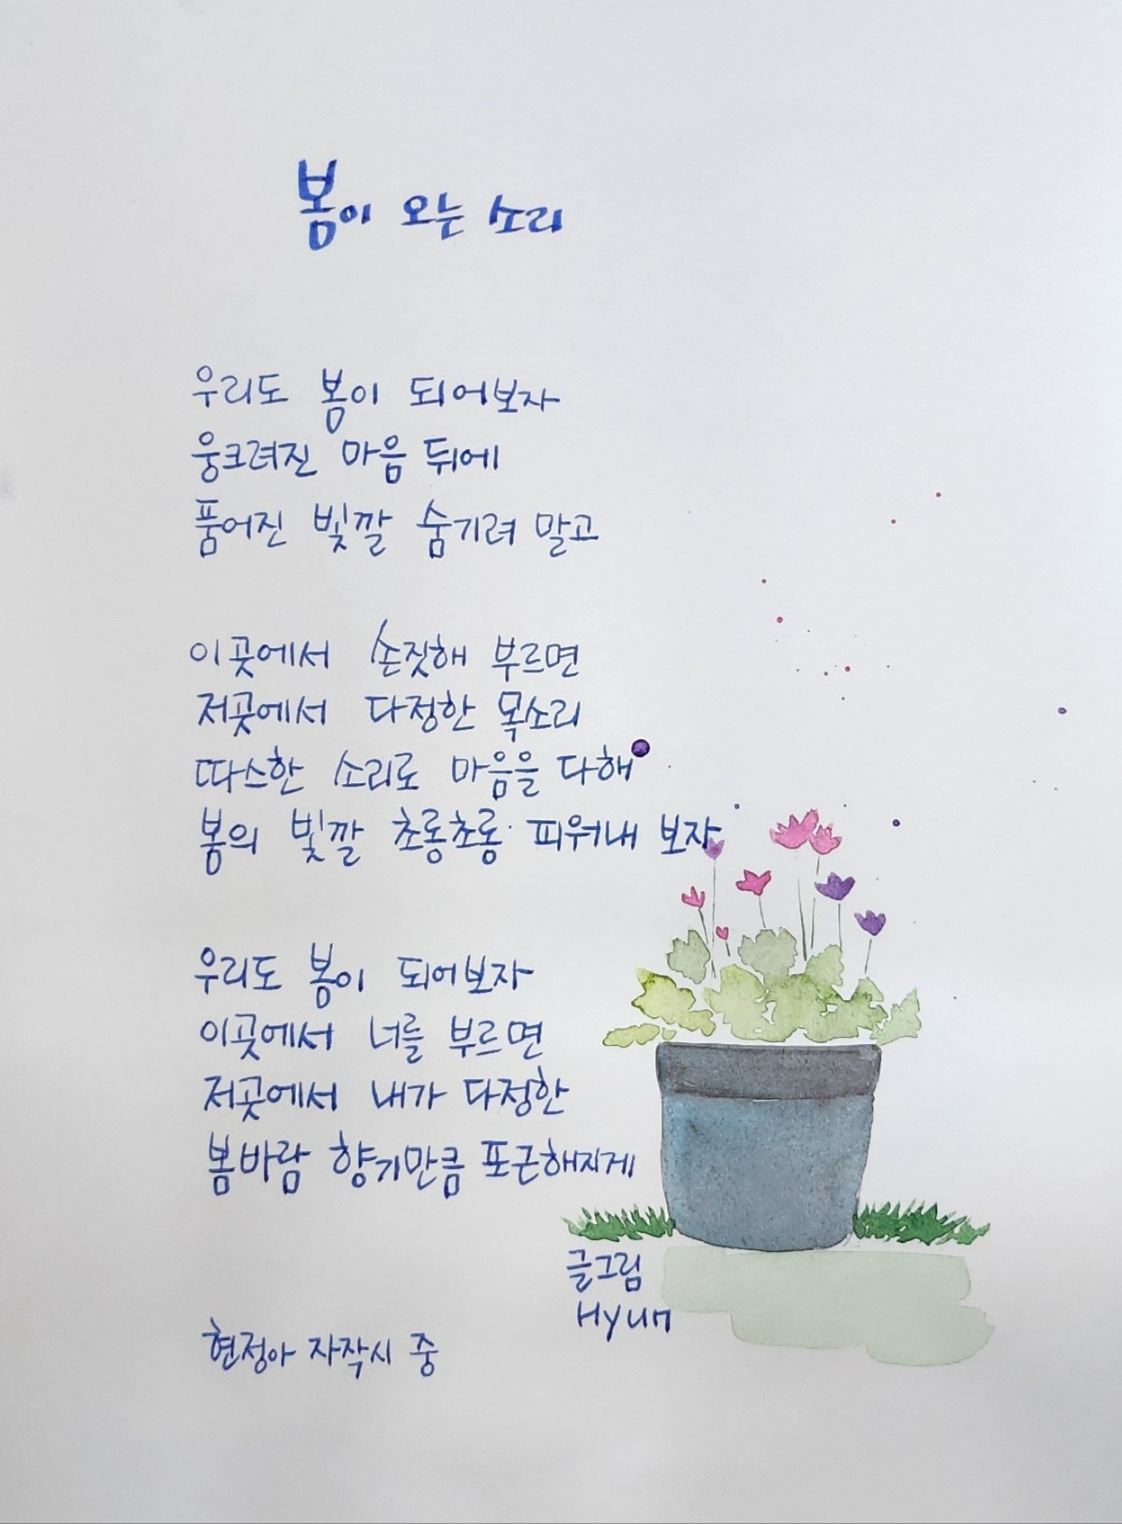 봄이 오는 소리
우리도 봄이 되어보자
웅크려진 마음 뒤에
품어진 빛깔 숨기려 말고
이곳에서 손짓해 부르면
저곳에서 다정한 목소리
따스한 소리로 마음을 다해
봄의 빛깔 초롱초롱 피워내 보자
우리도 봄이 되어보자
이곳에서 너를 부르면
저곳에서 내가 다정한
봄바람 향기만큼 포근해지게
글그림
Hyun
현정아 자작시 중